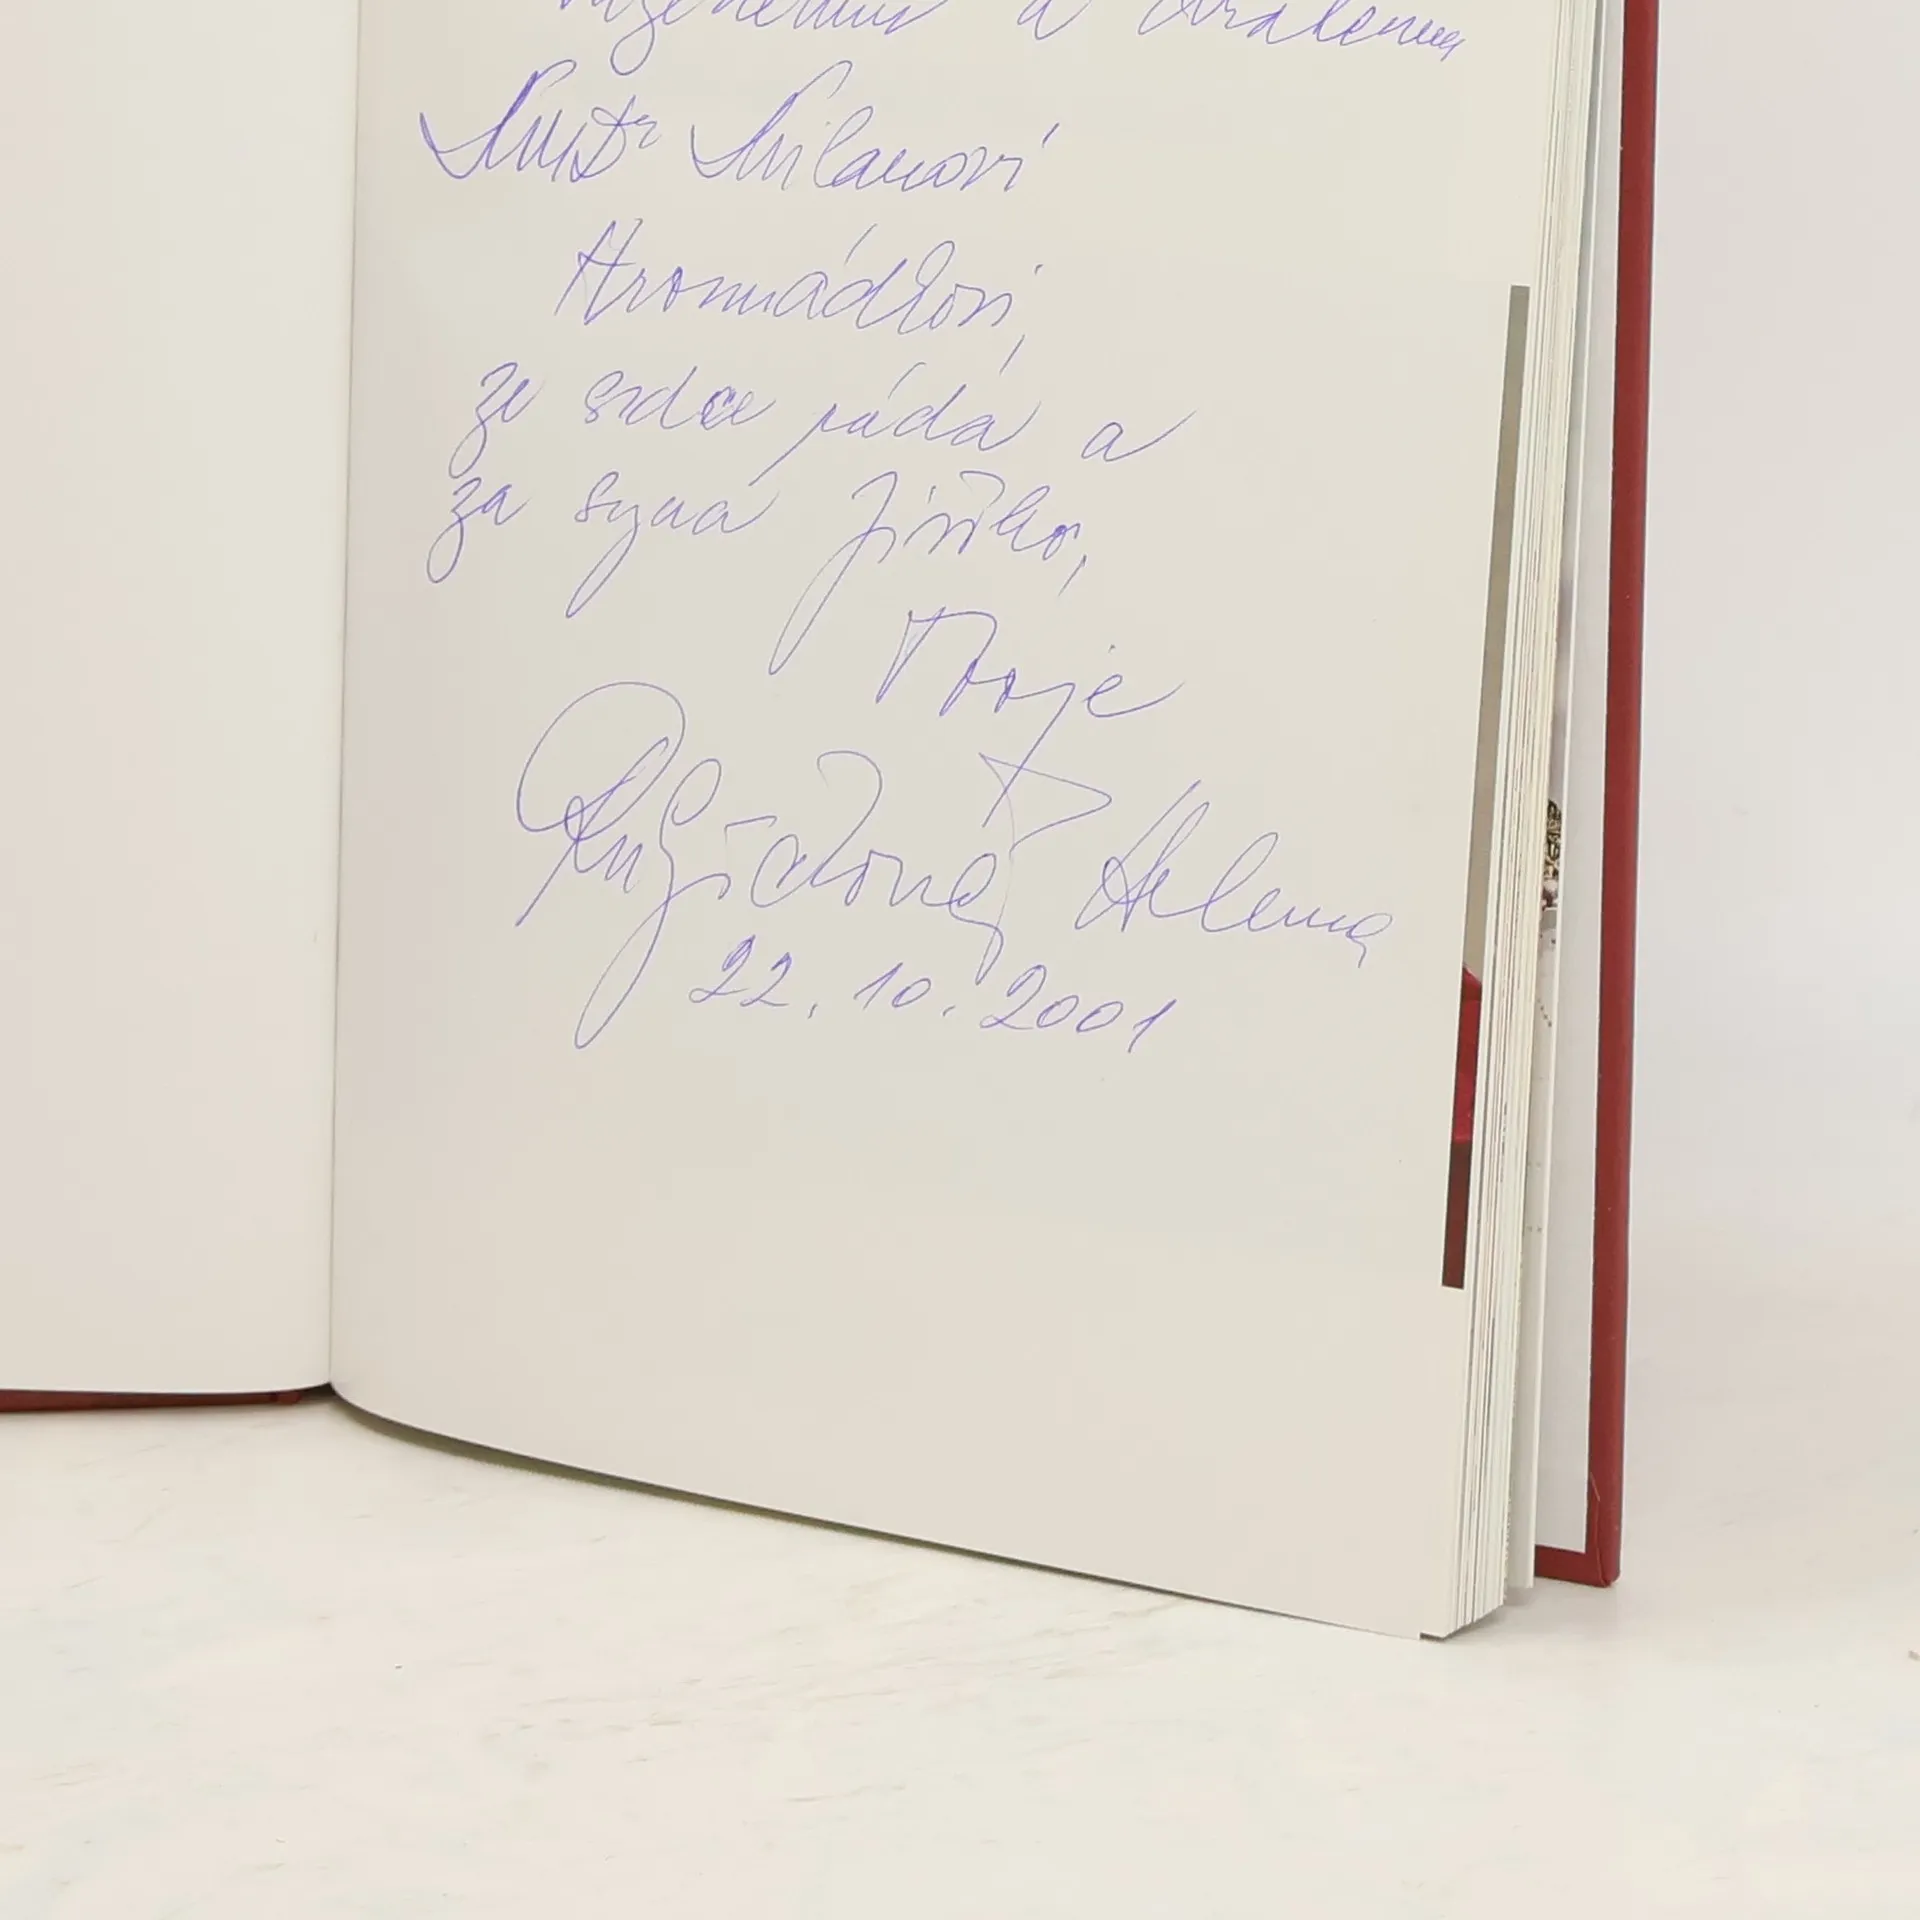 Váženému a drahému
MUDr Milanovi
Hromádkovi,
ze srdce ráda a
za syna Jiřího,
Tvoje
Růžičková Helena
22. 10. 2001